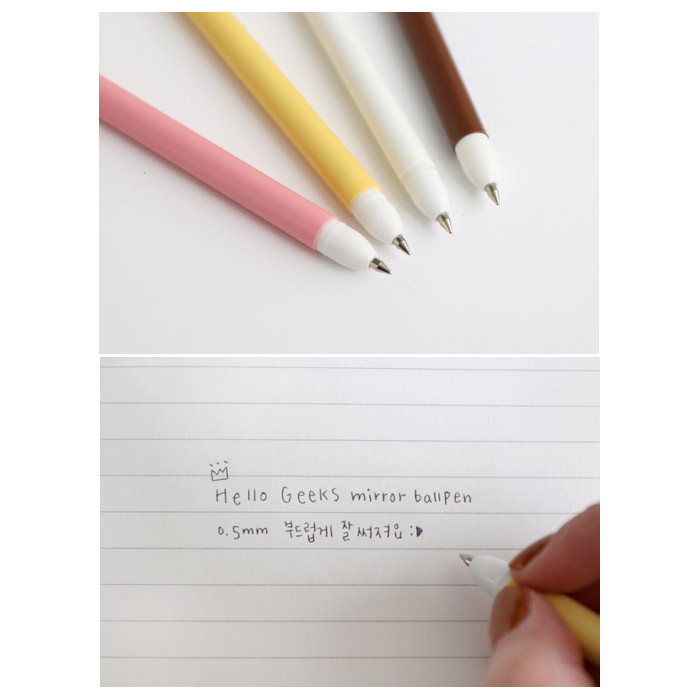 Hello Geeks mirror ballpen
0.5mm 부드럽게 잘 써져요 :▶